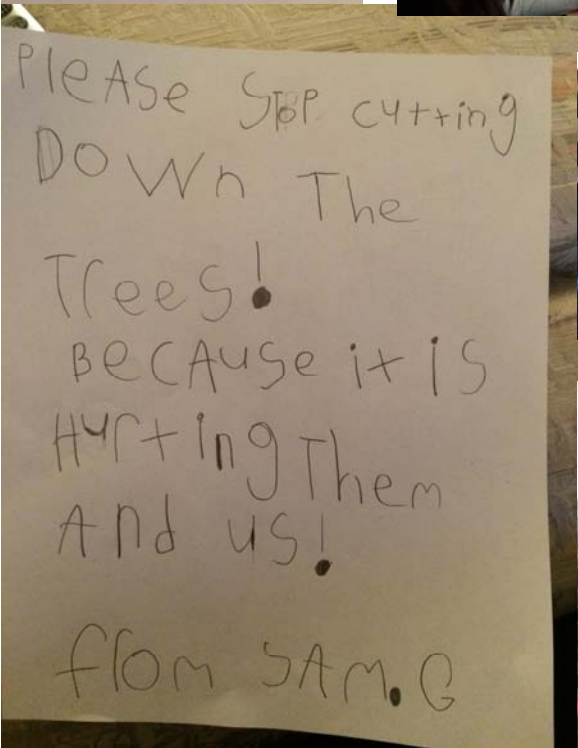 PleASe STOP cutting
DOWn The
Trees!
BeCAuse it iS
Hurting Them
And uS!
from SAM.G